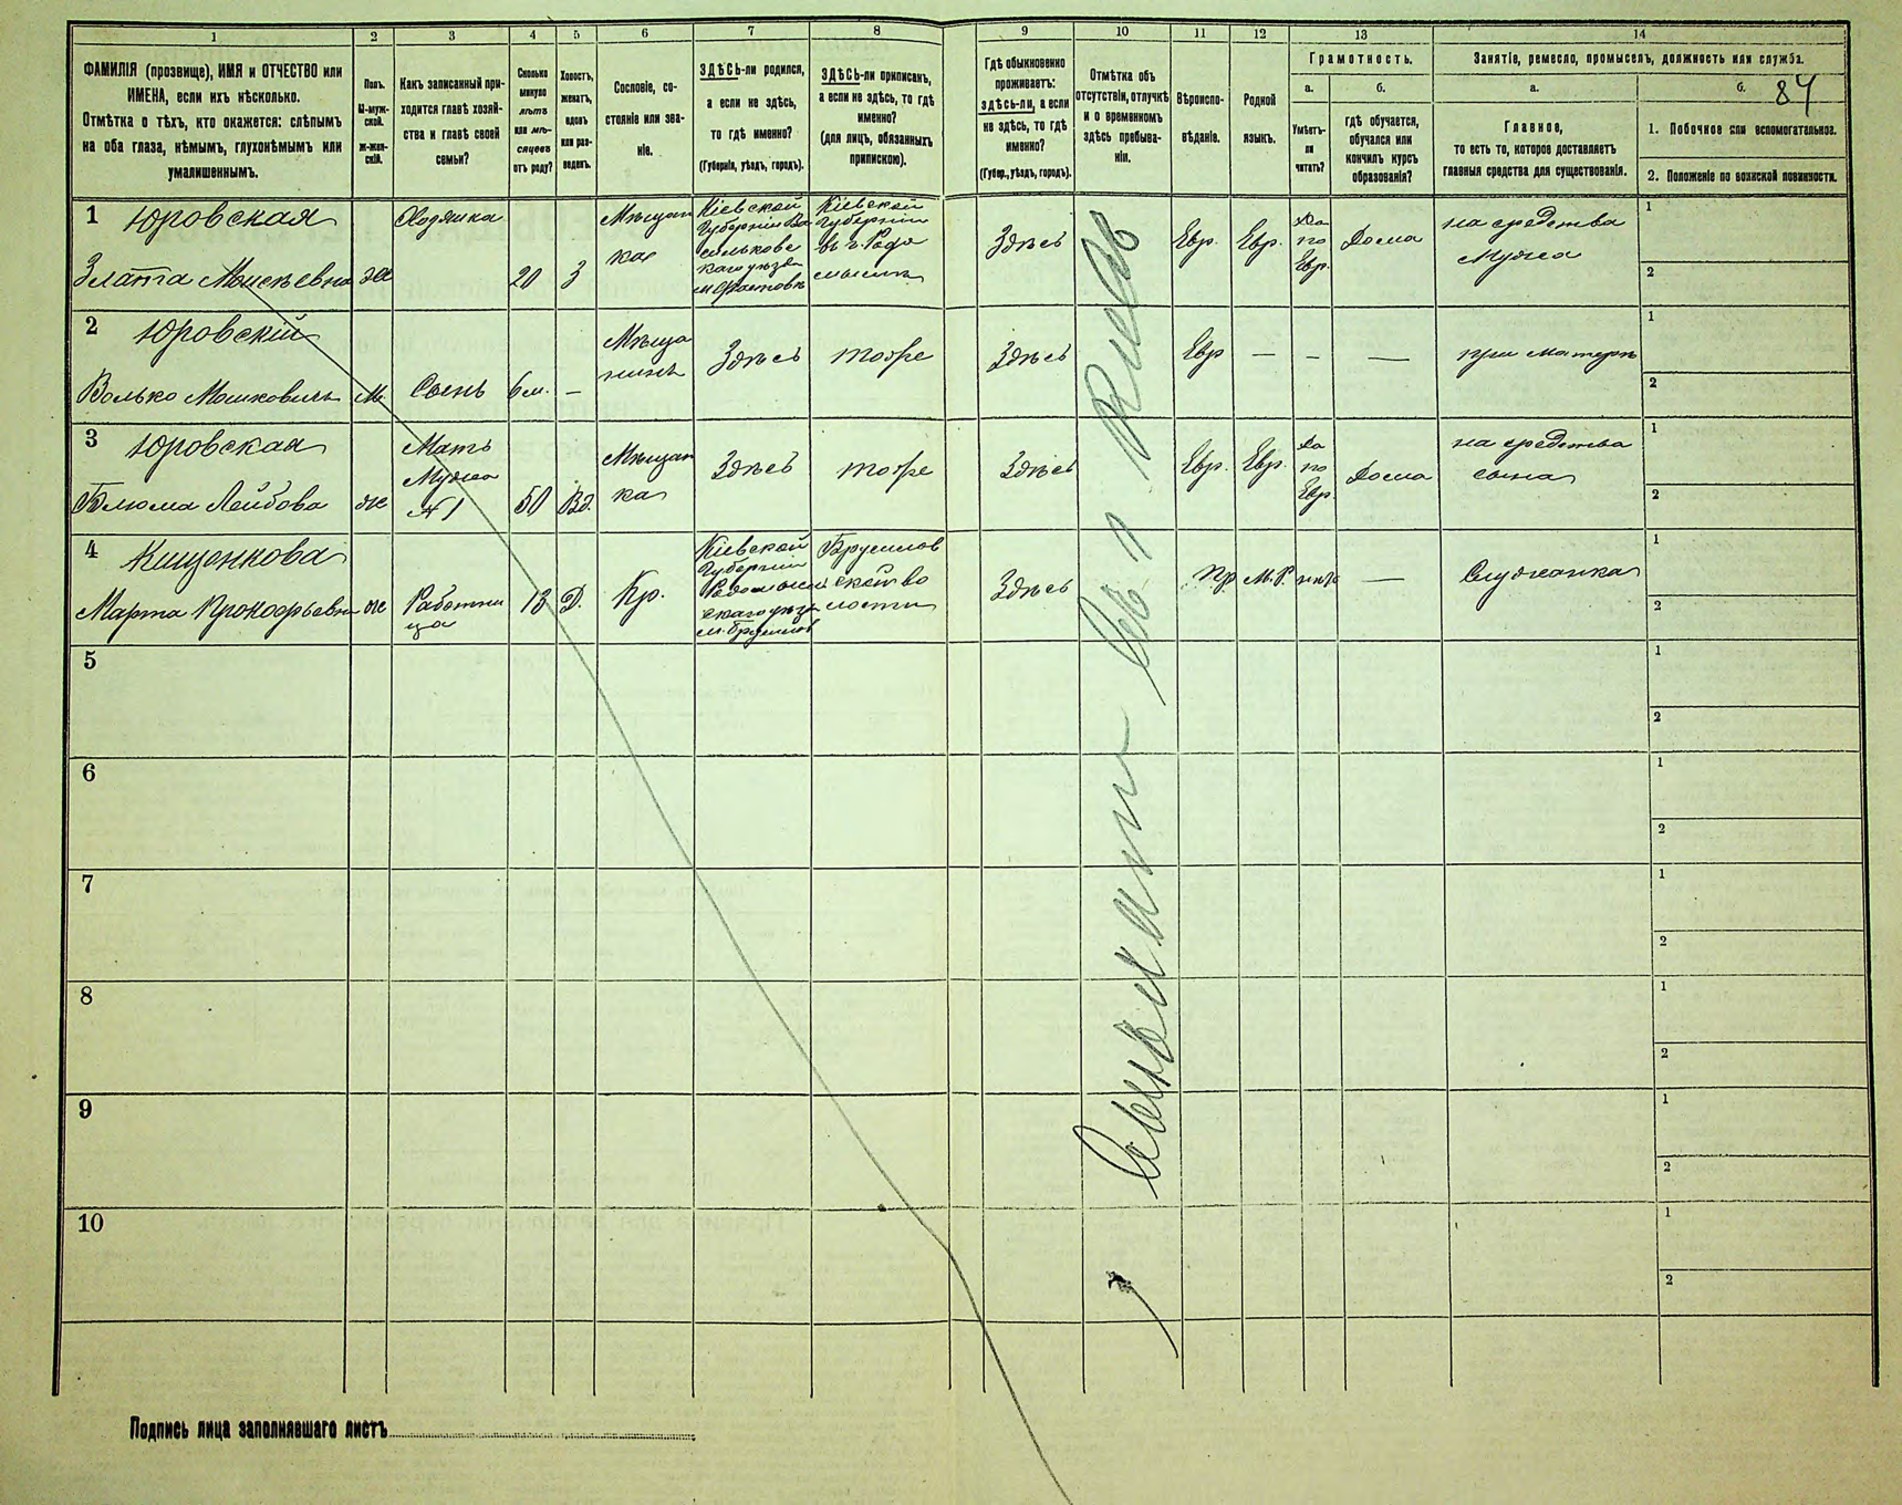 1 2 3 4 5 6 7 8 9 10 11 12 13 14
ФАМИЛІЯ (прозвище), ИМЯ и ОТЧЕСТВО или
ИМЕНА, если ихъ нѣсколько.
Отмѣтка о тѣхъ, кто окажется: слѣпымъ
на оба глаза, нѣмымъ, глухонѣмымъ или
умалишеннымъ.
Полъ.
М-муж-
ской.
Ж-жен-
скій.
Какъ записанный при-
ходится главѣ хозяй-
ства и главѣ своей
семьи?
Сколько
минуло
лѣтъ
или мѣ-
сяцевъ
отъ роду?
Холостъ,
женатъ,
вдовъ
или раз-
веденъ.
Сословіе, со-
стояніе или зва-
ніе.
ЗДѢСЬ-ли родился,
а если не здѣсь,
то гдѣ именно?
(Губернія, уѣздъ, городъ).
ЗДѢСЬ-ли приписанъ,
а если не здѣсь, то гдѣ
именно?
(для лицъ, обязанныхъ
припискою).
Гдѣ обыкновенно
проживаетъ:
здѣсь-ли, а если
не здѣсь, то гдѣ
именно?
(Губер., уѣздъ, городъ).
Отмѣтка объ
отсутствіи, отлучкѣ
и о временномъ
здѣсь пребыва-
ніи.
Вѣроиспо-
вѣданіе.
Родной
языкъ.
Грамотность.
а.
Умѣетъ-
ли
читать?
б.
гдѣ обучается,
обучался или
кончилъ курсъ
образованія?
Занятіе, ремесло, промыселъ, должность или служба.
а.
Главное,
то есть то, которое доставляетъ
главныя средства для существованія.
б.
84
1. Побочное или вспомогательное.
2. Положеніе по воинской повинности.
1
Юровская
Злата Моисѣевна
ж
Хозяйка
20
З
Мѣщан
ка
Кіевской
Губерніи Ва
сильковс
каго уѣзда
м. Фастовъ
Кіевской
Губерніи
въ г. Радо
мыслѣ
Здѣсь
Евр.
Евр.
Да
по
Евр.
Дома
на средства
мужа
1
2
2
Юровскій
Волько Мошковичъ
М.
Сынъ
6 м.
—
Мѣща
нинъ
Здѣсь
тоже
Здѣсь
Евр
—
–
—
при матери
1
2
3
Юровская
Блюма Лейбова
ж
Мать
мужа
№ 1
50
Вд.
Мѣщан
ка
Здѣсь
тоже
Здѣсь
Евр.
Евр.
Да
по
Евр.
Дома
на средства
сына
1
2
4
Кищенкова
Марта Прокофьевна
ж
Работни
ца
13
Д.
Кр.
Кіевской
Губерніи
Радомысль
скаго уѣзда
м. Брусиловъ
Брусилов
ской во
лости
Здѣсь
Пр.
М.Р.
нѣтъ
—
Служанка
1
2
5
1
2
6
1
2
7
1
2
8
1
2
9
1
2
10
1
2
Подпись лица заполнявшаго листъ